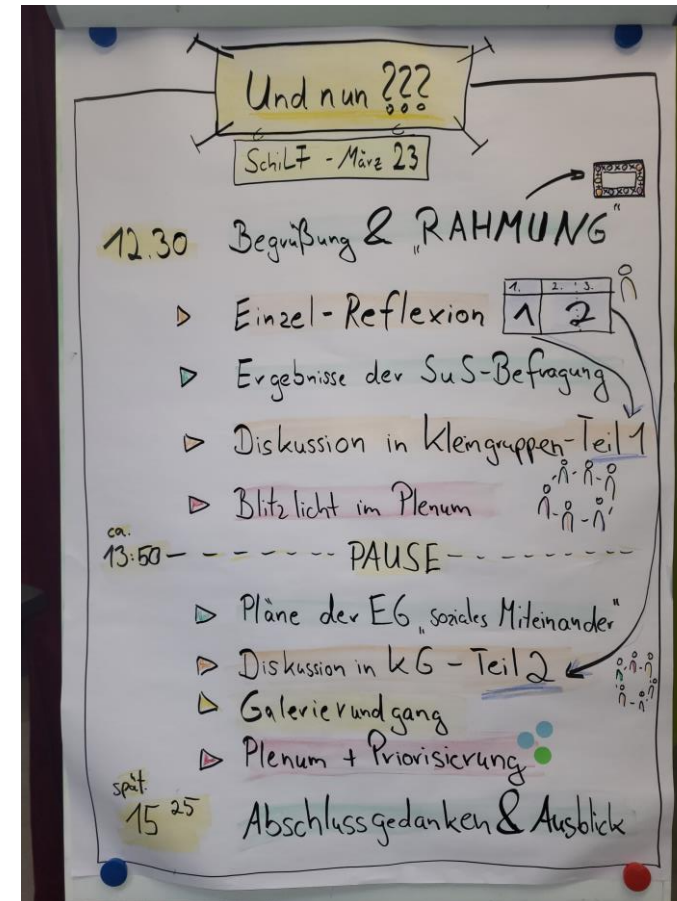 Und nun ???
SchiLF - März 23
12.30 Begrüßung & „RAHMUNG"
Einzel-Reflexion
1. 2. 3.
1 2
Ergebnisse der SuS-Befragung
Diskussion in Kleingruppen-Teil 1
Blitzlicht im Plenum
ca.
13:50 - - - - - - PAUSE - - - - - -
Pläne der EG „soziales Miteinander"
Diskussion in KG - Teil 2
Galerierundgang
Plenum + Priorisierung
spät.
15 25 Abschlussgedanken & Ausblick